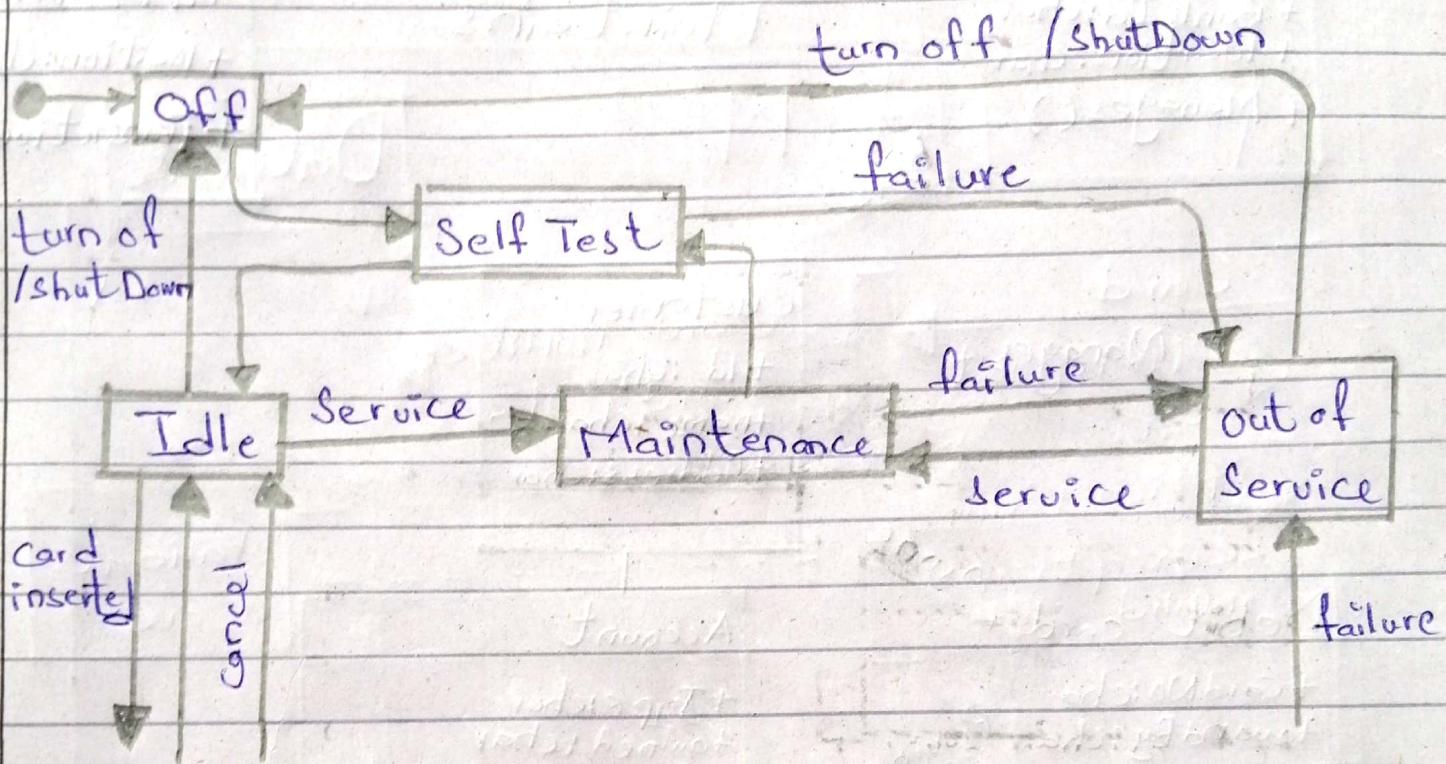 turn off /ShutDown
Off
failure
turn of
/shutDown
Self Test
failure
Idle
Service
Maintenance
out of
Service
service
Card
inserted
cancel
failure